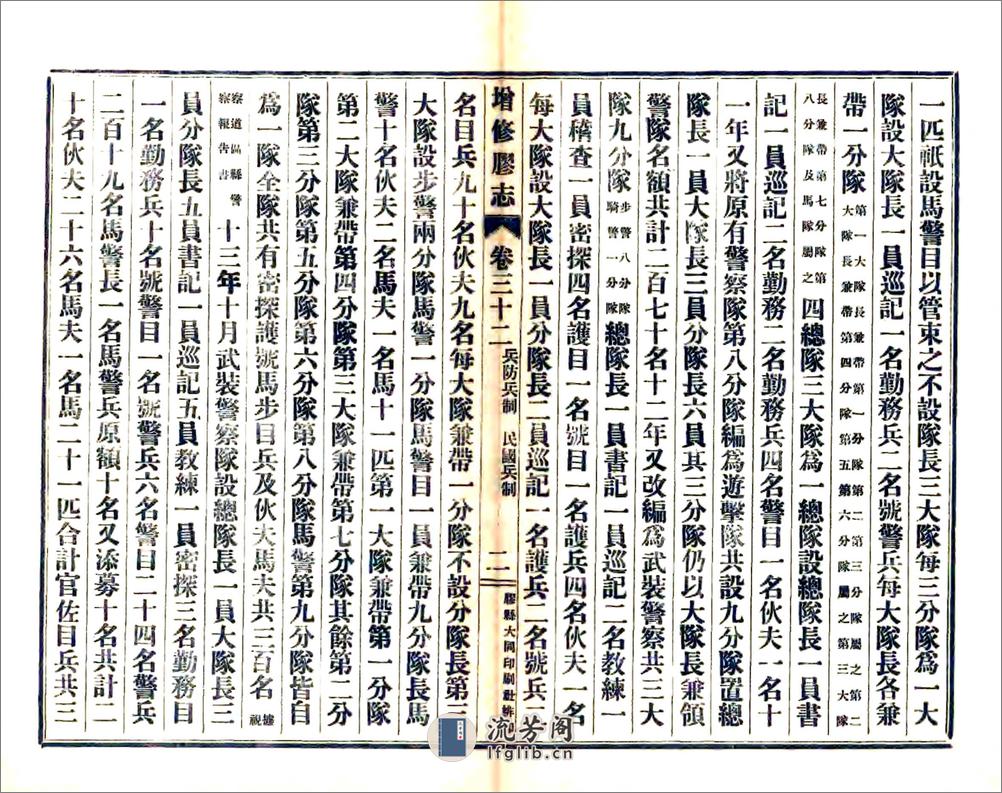 一匹祇設馬警目以管束之不設隊長三大隊每三分隊爲一大
隊設大隊長一員巡記一名勤務兵二名號警兵每大隊長各兼
帶一分隊第一大隊長兼帶第一分隊第二第三分隊屬之第二大隊長兼帶第四分隊第五第六分隊屬之第三大隊
長兼帶第七分隊第八分隊及馬隊屬之四總隊三大隊爲一總隊設總隊長一員書
記一員巡記二名勤務二名勤務兵四名警目一名伙夫一名十
一年又將原有警察隊第八分隊編爲遊擊隊共設九分隊置總
隊長一員大隊長三員分隊長六員其三分隊仍以大隊長兼領
警隊名額共計二百七十名十二年又改編爲武裝警察共三大
隊九分隊步警八分隊騎警一分隊總隊長一員書記一員巡記二名教練一
員稽查一員密探四名護目一名號目一名護兵四名伙夫一名
每大隊設大隊長一員分隊長二員巡記一名護兵二名號兵三
增修膠志
卷三十二
兵防兵制 民國兵制
二
膠縣大同印刷社
名目兵九十名伙夫九名每大隊兼帶一分隊不設分隊長第三
大隊設步警兩分隊馬警一分隊馬警目一員兼帶九分隊長馬
警十名伙夫二名馬夫一名馬十一匹第一大隊兼帶第一分隊
第二大隊兼帶第四分隊第三大隊兼帶第七分隊其餘第二分
隊第三分隊第五分隊第六分隊第八分隊馬警第九分隊皆自
爲一隊全隊共有密探護號馬步目兵及伙夫馬夫共三百名據視
察道區縣警察報告書十三年十月武裝警察隊設總隊長一員大隊長三
員分隊長五員書記一員巡記五員教練一員密探三名勤務目
一名勤務兵十名號警目一名號警兵六名警目二十四名警兵
二百十九名馬警長一名馬警兵原額十名又添募十名共計二
十名伙夫二十六名馬夫一名馬二十一匹合計官佐目兵共三
流芳阁
lfglib.cn